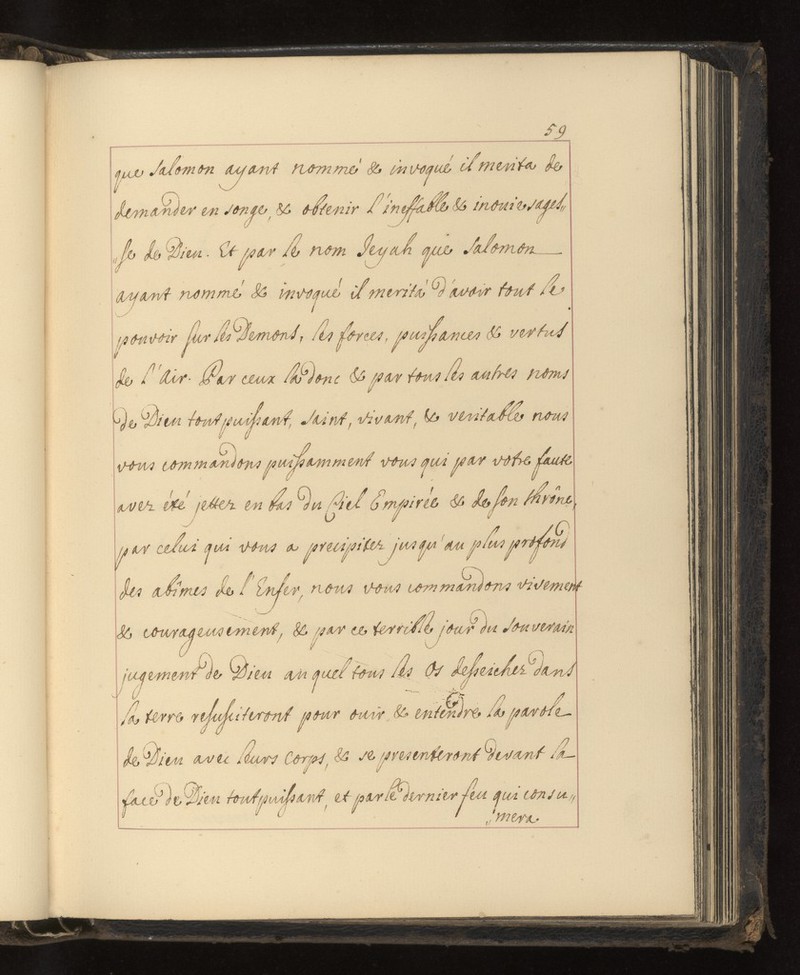 59
que Salomon ayant nommé & invoqué il merita de
demander en songe, & obtenir l'ineffable & inouie sages„
„se de Dieu. Et par le nom Jeyah que Salomon
ayant nommé & invoqué il merità d'avoir tout le
pouvoir sur les Demons, les forces, puissances & vertus
de l'air. Par ceux là donc & par tous les autres noms
de Dieu tout puissant, saint, vivant, & veritable nous
vous commandons puissamment vous qui par votre faute
avez été jettez en bas du Ciel Empirée & de son thrône,
par celui qui vous a precipitez jusqu'au plus profond
des abîmes de l'Enfer, nous vous commandons vivement
& courageusement, & par ce terrible jour du souverain
jugement de Dieu auquel tous les Os desseichez dans
la terre resusciteront pour ouir & entendre la parole
de Dieu avec leurs corps, & se presenteront devant la
face de Dieu tout puissant, et par le dernier feu qui consu„
„mera